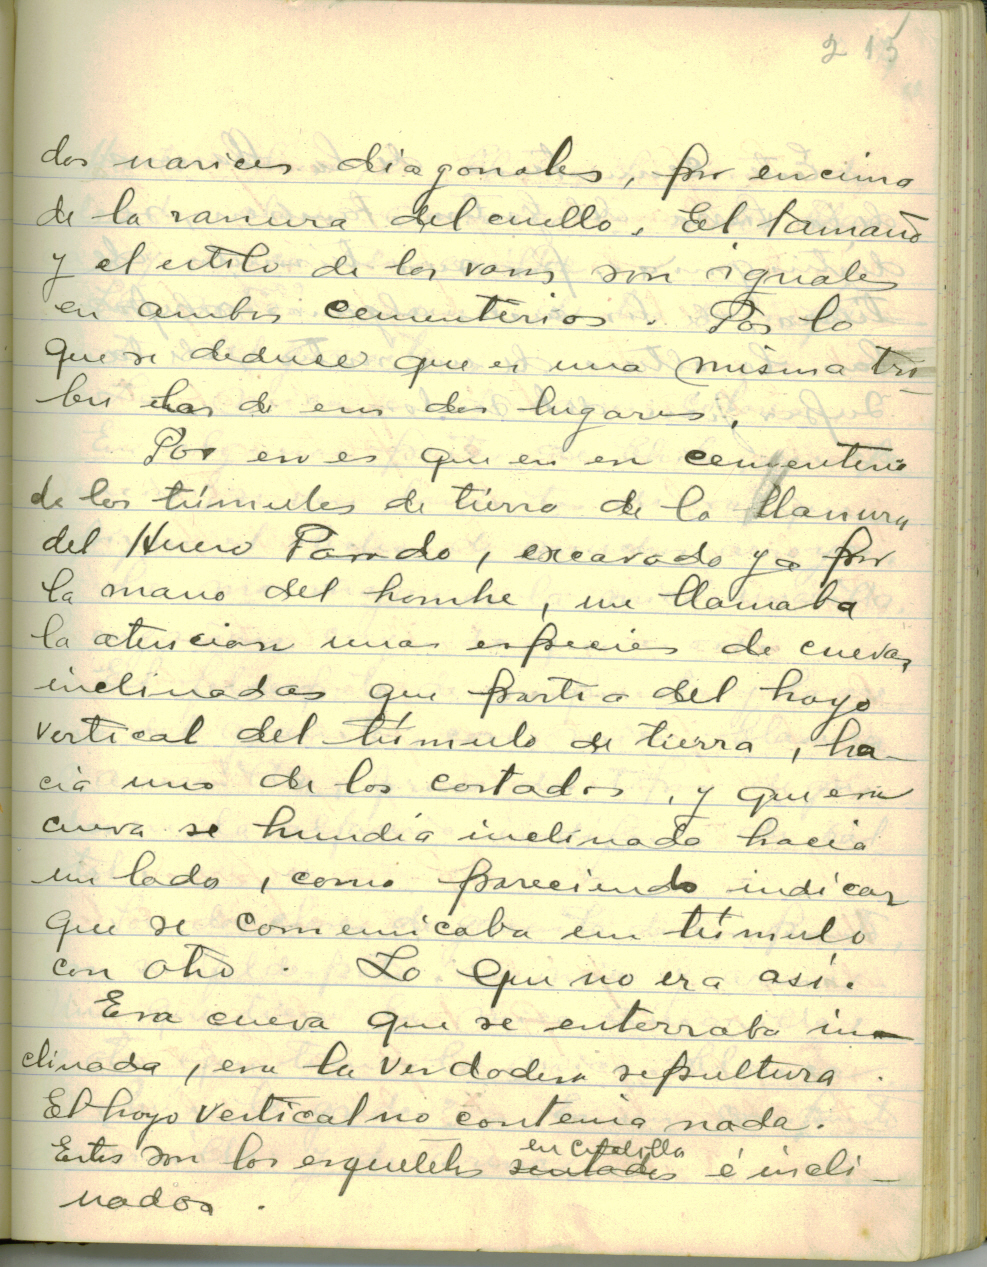 2 15
dos narices diagonales, por encima
de la ranura del cuello. El tamaño
y el estilo de los vasos son iguales
en ambos cementerios. Por lo
que se deduce que es una misma tri-
bu de los dos lugares.
Por eso es que en en cementerio
de los túmulos de tierra de la llanura
del Huero Pardo, excavado ya por
la mano del hombre, me llamaba
la atencion unas especies de cuevas
inclinadas que partia del hoyo
vertical del túmulo de tierra, ha-
cia uno de los costados, y que esa
cueva se hundía inclinada hacia
un lado, como pareciendo indicar
que se comunicaba un túmulo
con otro. Lo que no era así.
Esa cueva que se enterraba in-
clinada, era la verdadera sepultura.
El hoyo vertical no contenia nada.
Estos son los esqueletos sentados en cuclilla é incli-
nados.